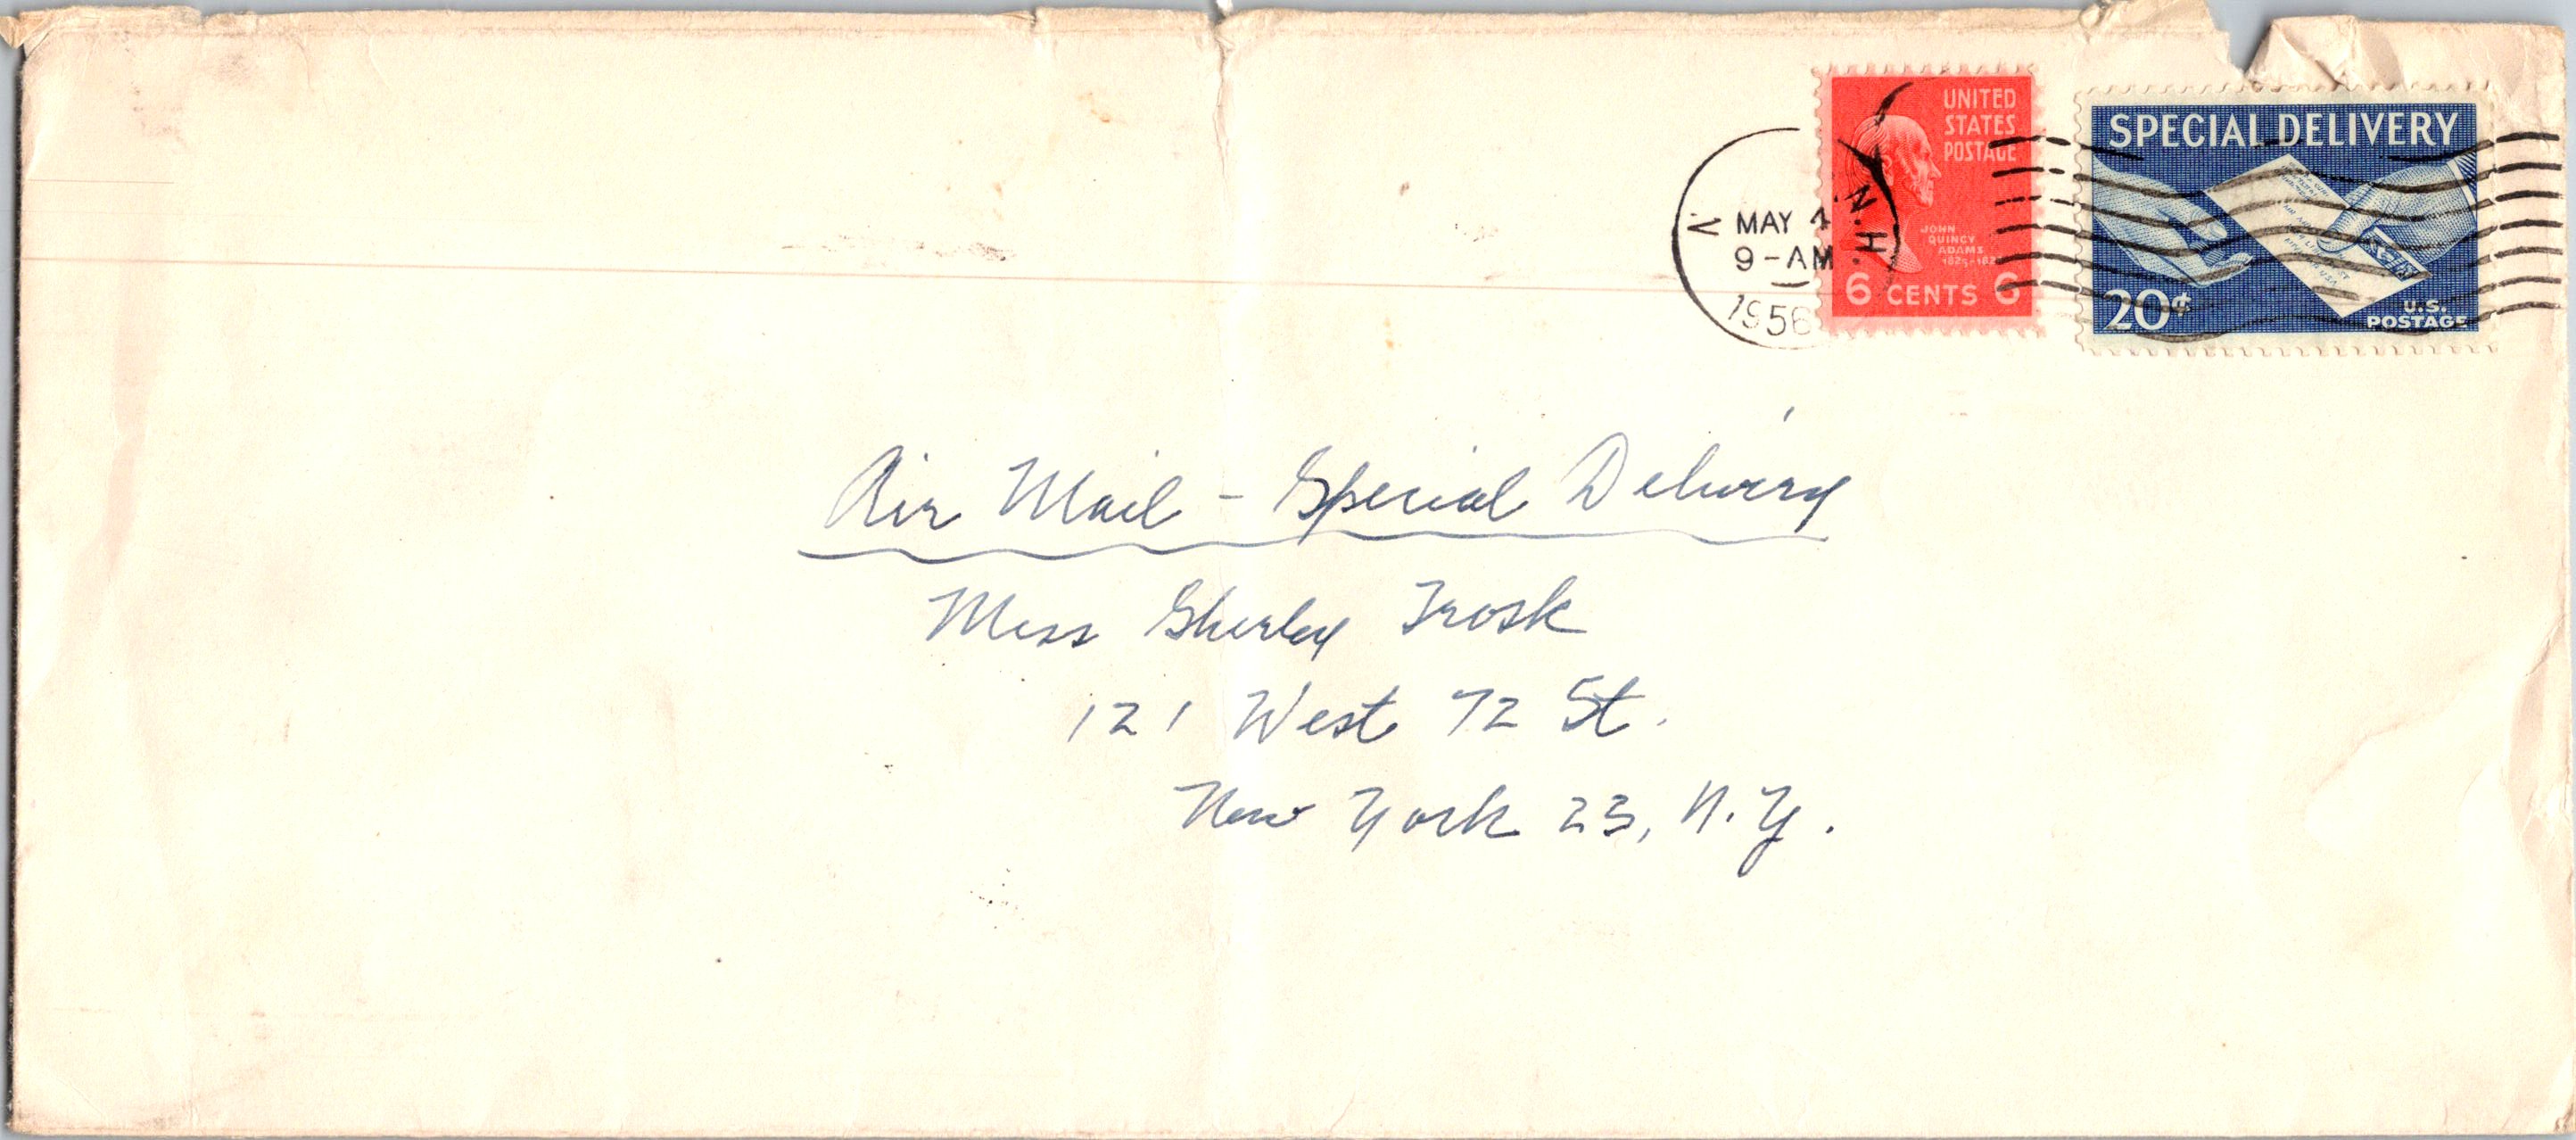 UNITED
STATES
POSTAGE
JOHN
QUINCY
ADAMS
6 CENTS 6
SPECIAL DELIVERY
20¢
U.S.
POSTAGE
N.H.
MAY
9-AM
1956
Air Mail - Special Delivery
Miss Shirley Trosk
121 West 72 St.
New York 23, N.Y.